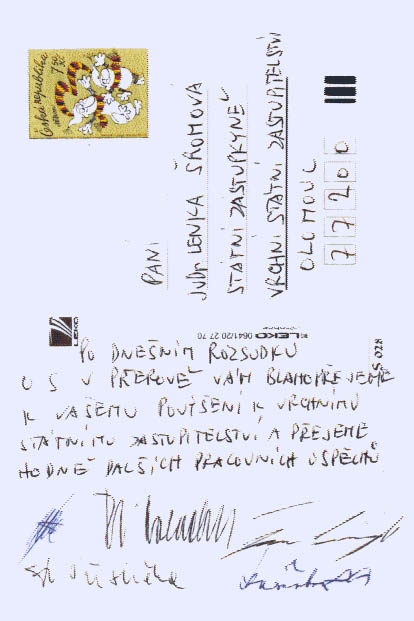 Česká republika
7.50 Kč
PANÍ
JUDr LENKA ŠROMOVÁ
STÁTNÍ ZÁSTUPKYNĚ
VRCHNÍ STÁTNÍ ZASTUPITELSTVÍ
OLOMOUC
77200
LEKO
LEKO 0641/20 27 70
S 028
PO DNEŠNÍM ROZSUDKU
O S V PŘEROVĚ VÁM BLAHOPŘEJEME
K VAŠEMU POVÝŠENÍ K VRCHNÍMU
STÁTNÍMU ZASTUPITELSTVÍ A PŘEJEME
HODNĚ DALŠÍCH PRACOVNÍCH ÚSPĚCHŮ